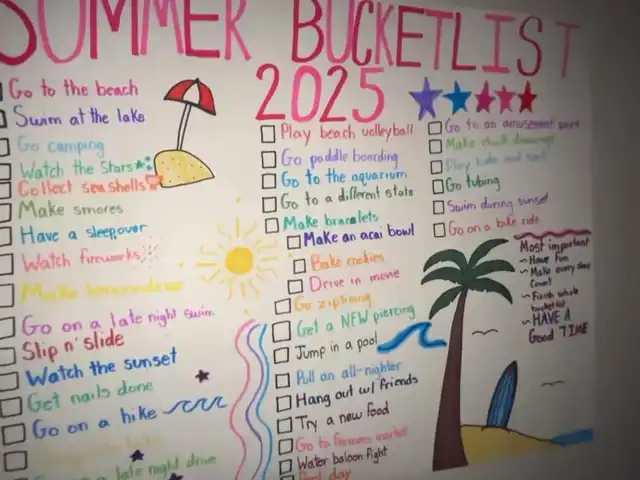 SUMMER BUCKETLIST
2025
Go to the beach
Swim at the lake
Go camping
Watch the stars
Collect sea shells
Make smores
Have a sleepover
Watch fireworks
Make lemonade
Go on a late night swim
Slip n' slide
Watch the sunset
Get nails done
Go on a hike
a late night drive
Play beach volleyball
Go paddle boarding
Go to the aquarium
Go to a different state
Make bracelets
Make an acai bowl
Bake cookies
Drive in movie
Go ziplining
Get a NEW piercing
Jump in a pool
Pull an all-nighter
Hang out w/ friends
Try a new food
Go to farmers market
Water baloon fight
day
Go to an amusement park
Make chalk drawings
Go tubing
Swim during sunset
Go on a bike ride
Most important
~ Have fun
~ Make every day
count
~ Finish whole
bucketlist
~ HAVE A
Good TIME